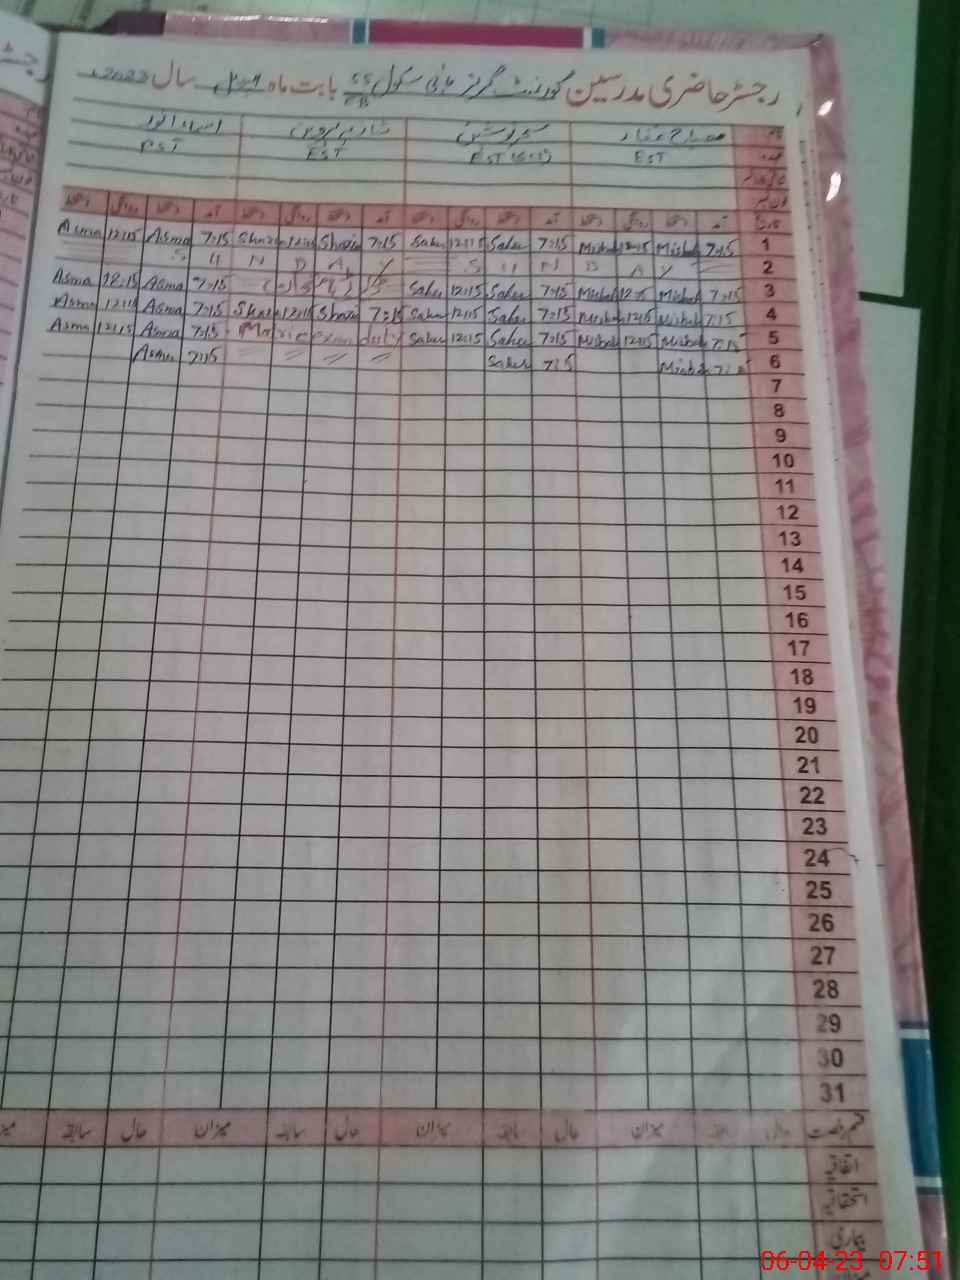 رجسٹر حاضری مدرسین گورنمنٹ گرلز ہائی سکول 55 EB بابت ماہ اپریل سال 2023
نام مصباح غفار سحر نوشین شازیہ پروین اسماء انور
عہدہ EST EST EST
تاریخ آمد دستخط روانگی دستخط آمد دستخط روانگی دستخط آمد دستخط روانگی دستخط آمد دستخط روانگی دستخط
Asma 12:15 Asma 7:15 Shazia Shazia 7:15 Saher 12:15 Saher 7:15 Misbah 12:15 Misbah 7:15 1
S U N D A Y S U N D A Y 2
Asma 12:15 Asma 7:15 Saher 12:15 Saher 7:15 Misbah 12:15 Misbah 7:15 3
Asma 12:15 Asma 7:15 Shazia 12:15 Shazia 7:15 Saher 12:15 Saher 7:15 Misbah 12:15 Misbah 7:15 4
Asma 12:15 Asma 7:15 Matric exam duty Saher 12:15 Saher 7:15 Misbah 12:15 Misbah 7:15 5
Asma 7:15 Saher 7:15 Misbah 7:15 6
7
8
9
10
11
12
13
14
15
16
17
18
19
20
21
22
23
24
25
26
27
28
29
30
31
قسم رخصت حال سابقہ میزان حال سابقہ میزان حال سابقہ میزان حال سابقہ میزان
اتفاقیہ
استحقاقیہ
بیماری
06-04-23 07:51